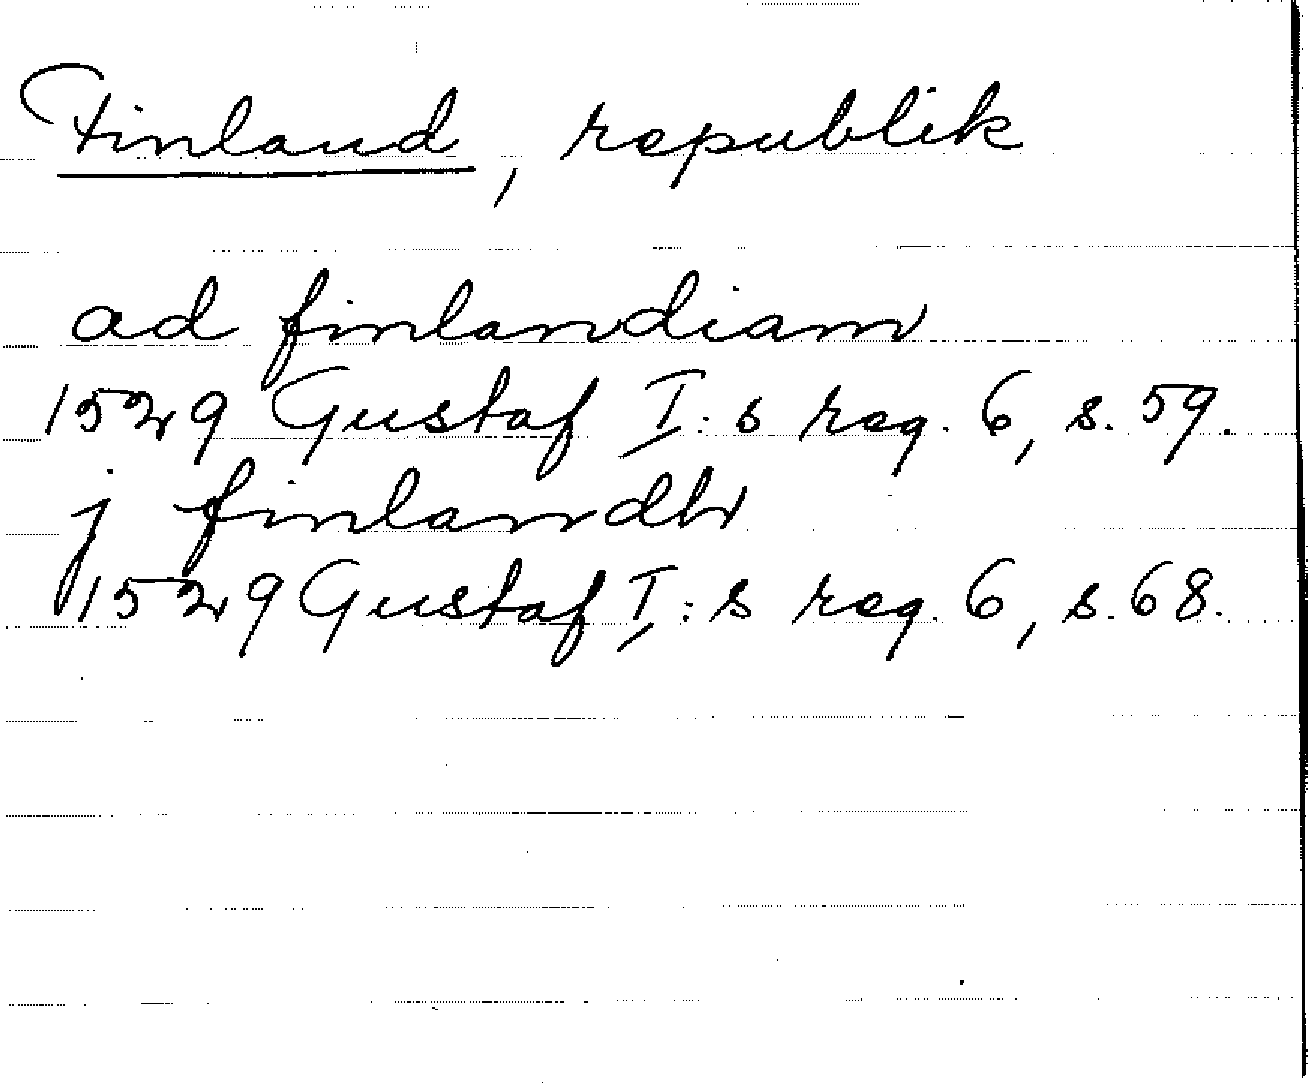 Finland, republik
ad finlandiam
1529 Gustaf I:s reg. 6, s. 59.
j finlandh
1529 Gustaf I:s reg. 6, s. 68.